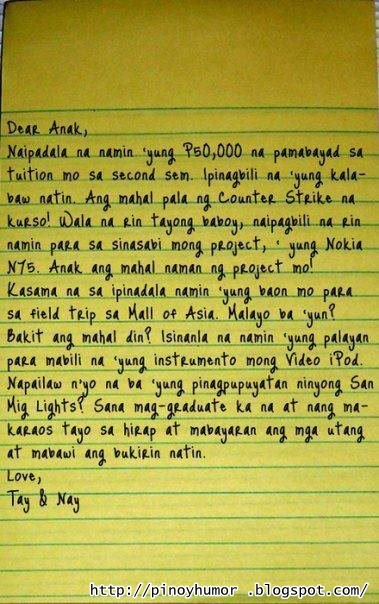 Dear Anak,
Naipadala na namin 'yung P50,000 na pamabayad sa
tuition mo sa second sem. Ipinagbili na 'yung kala-
baw natin. Ang mahal pala ng Counter Strike na
kurso! Wala na rin tayong baboy, naipagbili na rin
namin para sa sinasabi mong project, ' yung Nokia
N75. Anak ang mahal naman ng project mo!
Kasama na sa ipinadala namin 'yung baon mo para
sa field trip sa Mall of Asia. Malayo ba 'yun?
Bakit ang mahal din? Isinanla na namin 'yung palayan
para mabili na 'yung instrumento mong Video iPod.
Napailaw n'yo na ba 'yung pinagpupuyatan ninyong San
Mig Lights? Sana mag-graduate ka na at nang ma-
karaos tayo sa hirap at mabayaran ang mga utang
at mabawi ang bukirin natin.
Love,
Tay & Nay
http://pinoyhumor .blogspot.com/